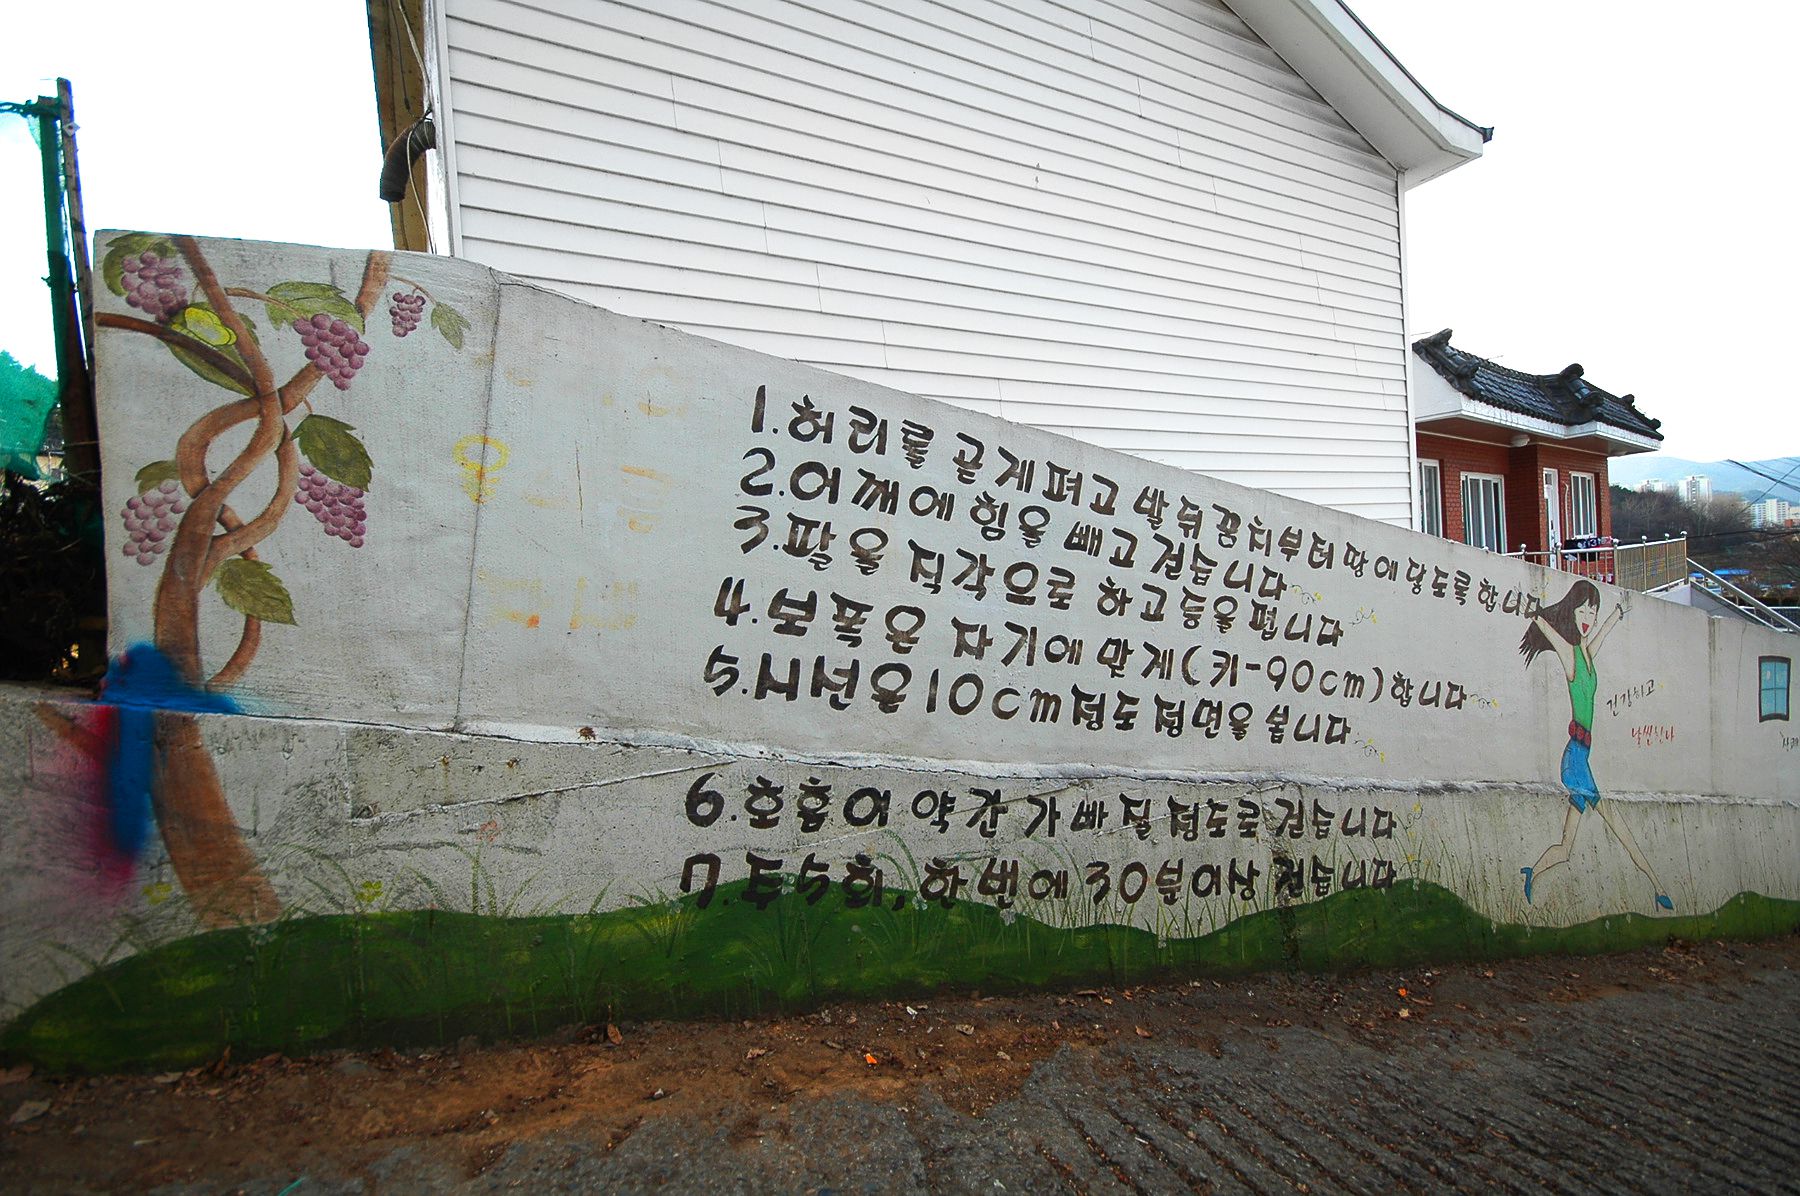 1.허리를 곧게펴고 발뒤꿈치부터 땅에닿도록합니다
2.어깨에힘을 빼고걷습니다
3.팔을 직각으로 하고등을폅니다
4.보폭은 자기에 맞게(키-90cm)합니다
5.시선은10cm정도정면을봅니다
6.호흡여 약간 가빠질정도로걷습니다
7.투5회,한번에30분이상걷습니다
건강하고
날씬한나